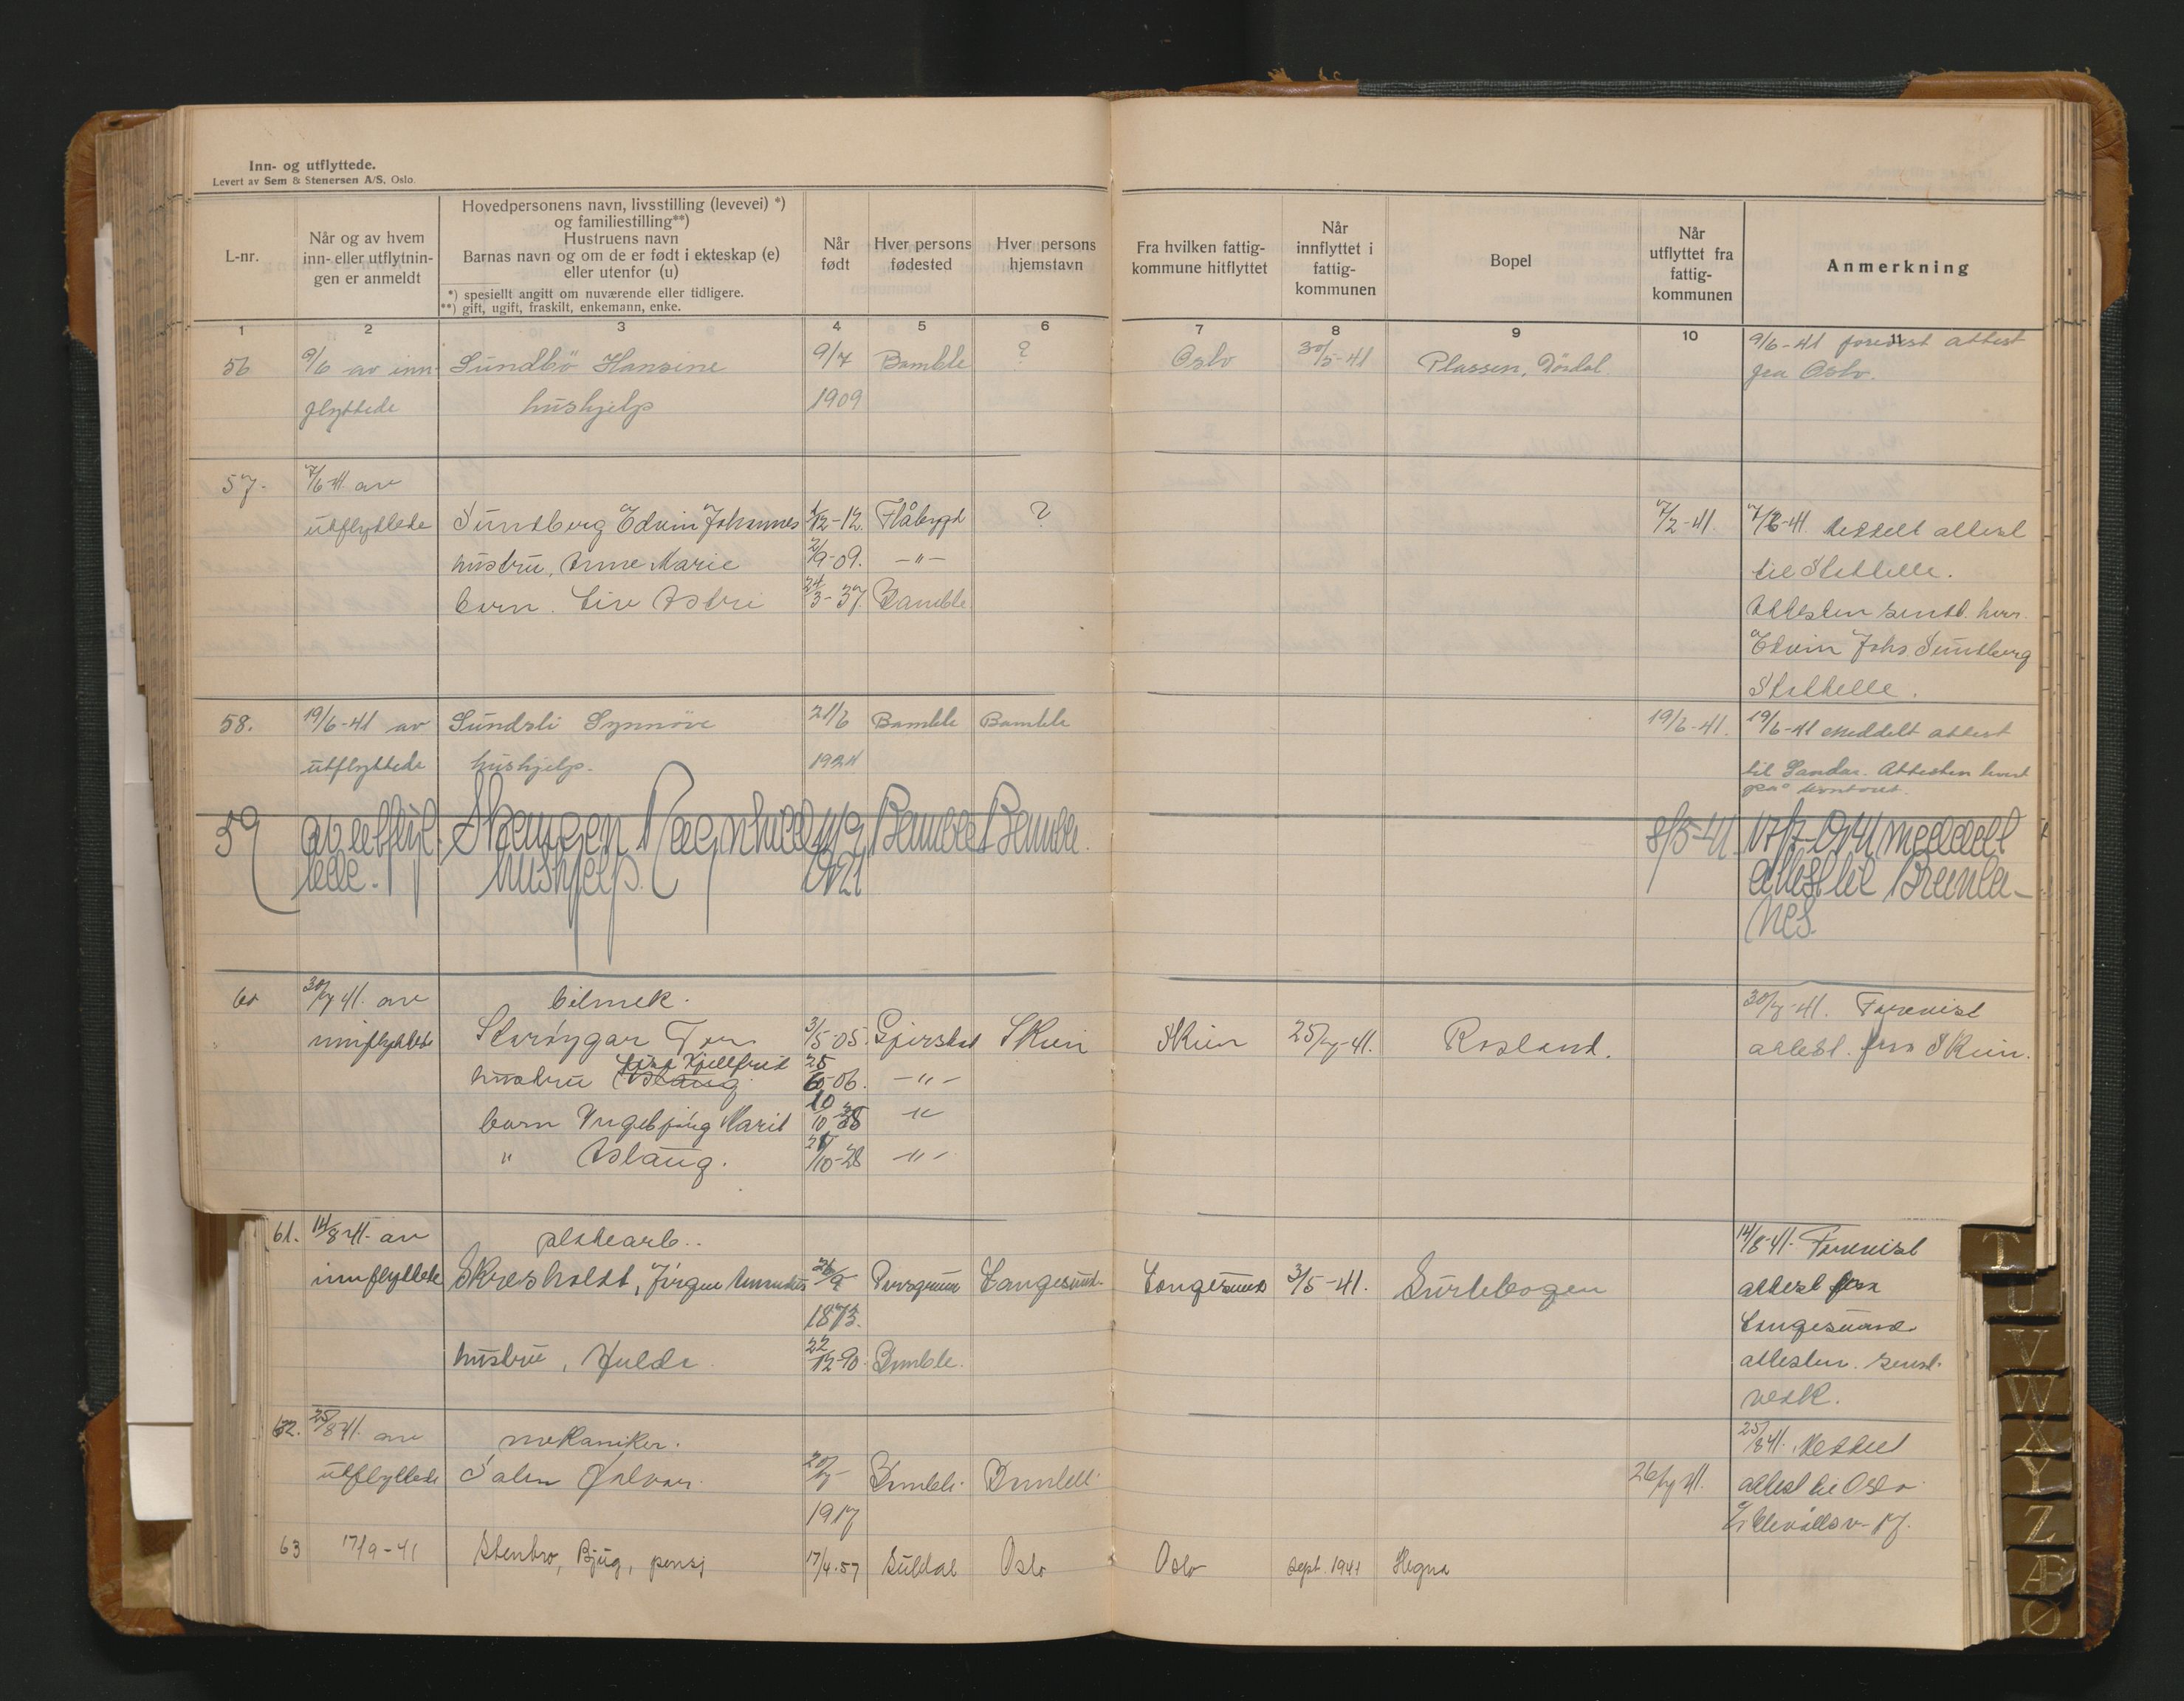 Inn- og utflyttede.
Levert av Sem & Stenersen A/S, Oslo.
L-nr.
Når og av hvem
inn- eller utflytnin-
gen er anmeldt
Hovedpersonens navn, livsstilling (levevei) *)
og familiestilling**)
Hustruens navn
Barnas navn og om de er født i ekteskap (e)
eller utenfor (u)
*) spesielt angitt om nuværende eller tidligere.
**) gift, ugift, fraskilt, enkemann, enke.
Når
født
Hver persons
fødested
Hver persons
hjemstavn
Fra hvilken fattig-
kommune hitflyttet
Når
innflyttet i
fattig-
kommunen
Bopel
Når
utflyttet fra
fattig-
kommunen
Anmerkning
1 2 3 4 5 6 7 8 9 10 11
56 9/6 av inn- Sundbö Hansine 9/7 Bamble ? Oslo 30/5-41 Plassen, Dördal 9/6-41 forevist attest
flyttede hushjelp 1909 fra Oslo.
57. 7/6-41. av
utflyttede Sundberg Edvin Johannes 1/12-12. Flåbygd ? 7/2-41. 7/6-41. Meddelt attest
hustru, Anne Marie 2/9-09. -"- til Stathelle.
barn. Liv Astri 24/3-37. Bamble Attesten sendt herr
Edvin Johs. Sundberg
Stathelle.
58. 19/6-41 av Sundsli Synnöve 21/6 Bamble Bamble 19/6-41. 19/6-41 Meddelt attest
utflyttede hushjelp. 1924 til Sandar. Attesten hent
på kontoret.
59 av utflyt- Skaugen Ragnhild 4/9 Bamble Bamble. 8/5-41. 17/7-1941 meddelt
tede. hushjelp. 1921 attest til Brunla-
nes.
60 30/7 41. av bilmek. 30/7-41. Forevist
innflyttede Tor 3/5-05. Gjerstad Skien Skien 25/7-41. Rosland. attest fra Skien.
hustru Aslaug Kjellfrid 25/6-06. -"-
barn Ingebjørg Marit 10/10 "
" Aslaug. 21/10-28 -"-
61. 14/8-41. av platearb.. 14/8-41. Forevist
innflyttede Skresholdt, Jörgen 26/9 Porsgrunn Langesund. Langesund 3/5-41. Surtebogen attest fra
1873. Langesund
hustru, Hulda. 22/12-90. Bamble. attesten sendt.
vedk.
62. 25/8 41. av mekaniker. 25/8 41. Meddelt
utflyttede Halvor. 20/7- Bamble. Bamble. 26/7 41. attest til Oslo
1917 Ullevålsv. 17.
63 17/9-41 Stenbro, Bjug, pensj 17/4.57 Suldal Oslo Oslo sept. 1941 Hegna
T
U
V
W
X
Y
Z
Æ
Ø